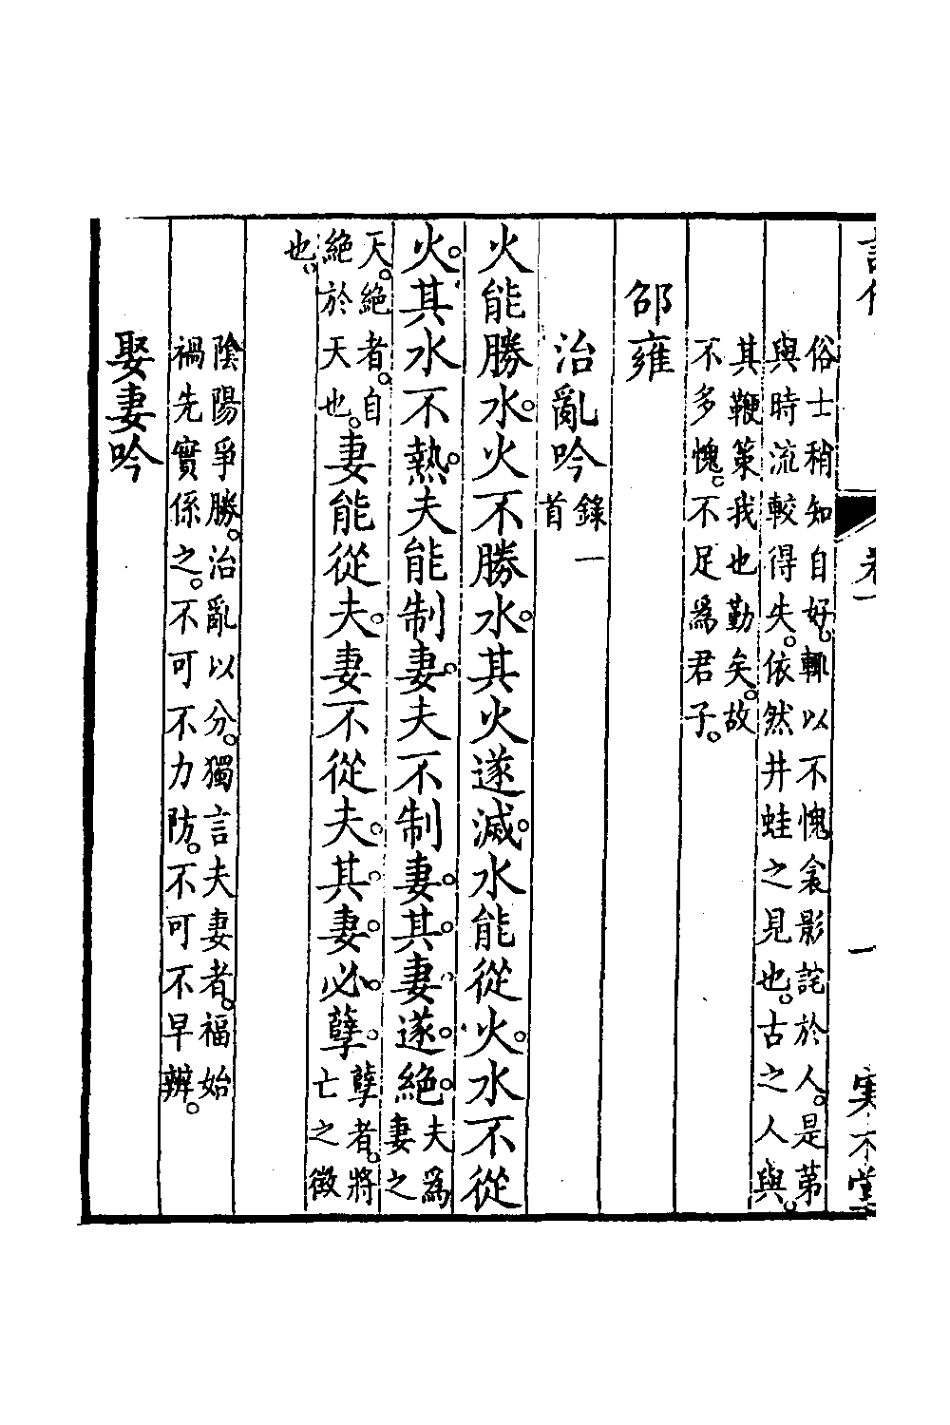 卷一
一
俗士稍知自好。輒以不愧衾影詫於人。是苐
與時流較得失。依然井蛙之見也。古之人與。
其鞭策我也勤矣。故
不多愧。不足爲君子。
邵雍
治亂吟 錄一首
火能勝水。火不勝水。其火遂滅。水能從火。水不從
火。其水不熱。夫能制妻。夫不制妻。其妻遂絕。夫爲妻之
天。絕者。自絕於天也。妻能從夫。妻不從夫。其妻必孽。孽者。將亡之徵
也。
陰陽爭勝。治亂以分。獨言夫妻者。福始
禍先實係之。不可不力防。不可不早辨。
娶妻吟